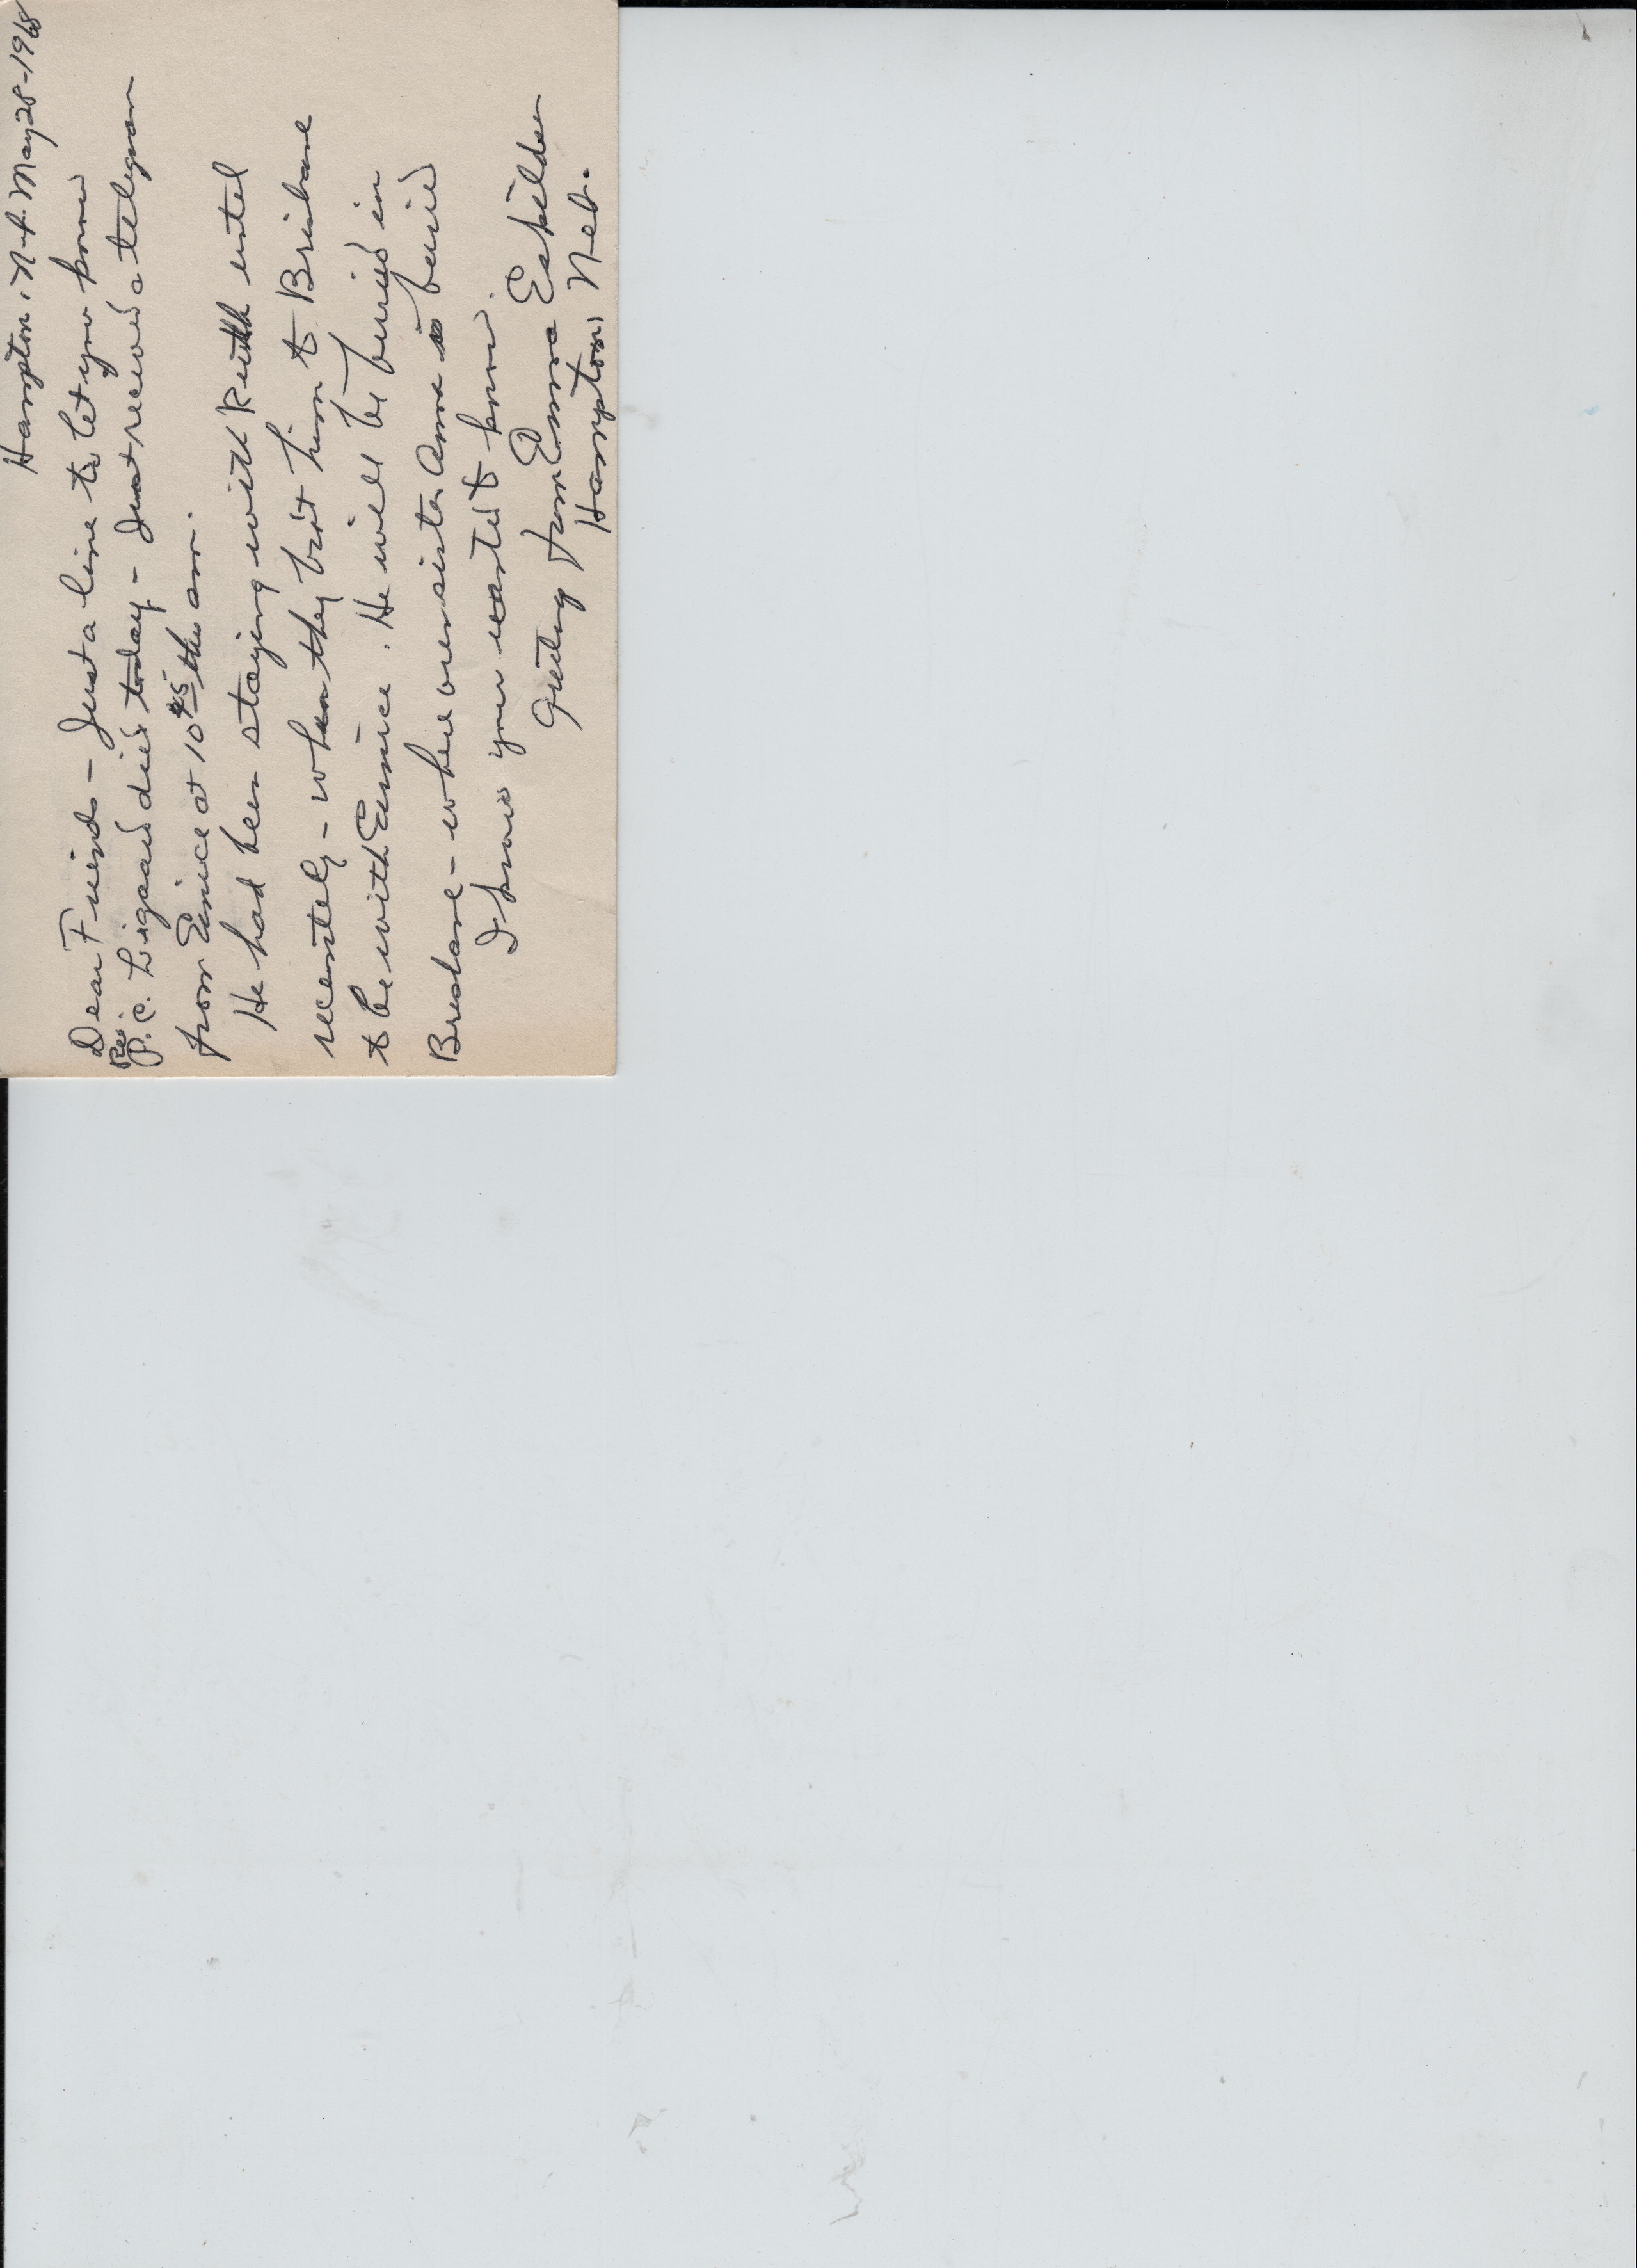 Hampton, N-b. May 28-1968
Dear Friends - Just a line to let you know
Rev.
P.C. Ligaard died today - Just received a telegram
from Eunice at 10 45 this am.
He had been staying with Keith until
recently - when they brot him to Brisbane
to be with Eunice. He will be buried in
Brisbane - where our sister Anna is buried
I know you wanted to know.
Greetings from Emma Eskildsen
Hampton, Neb.